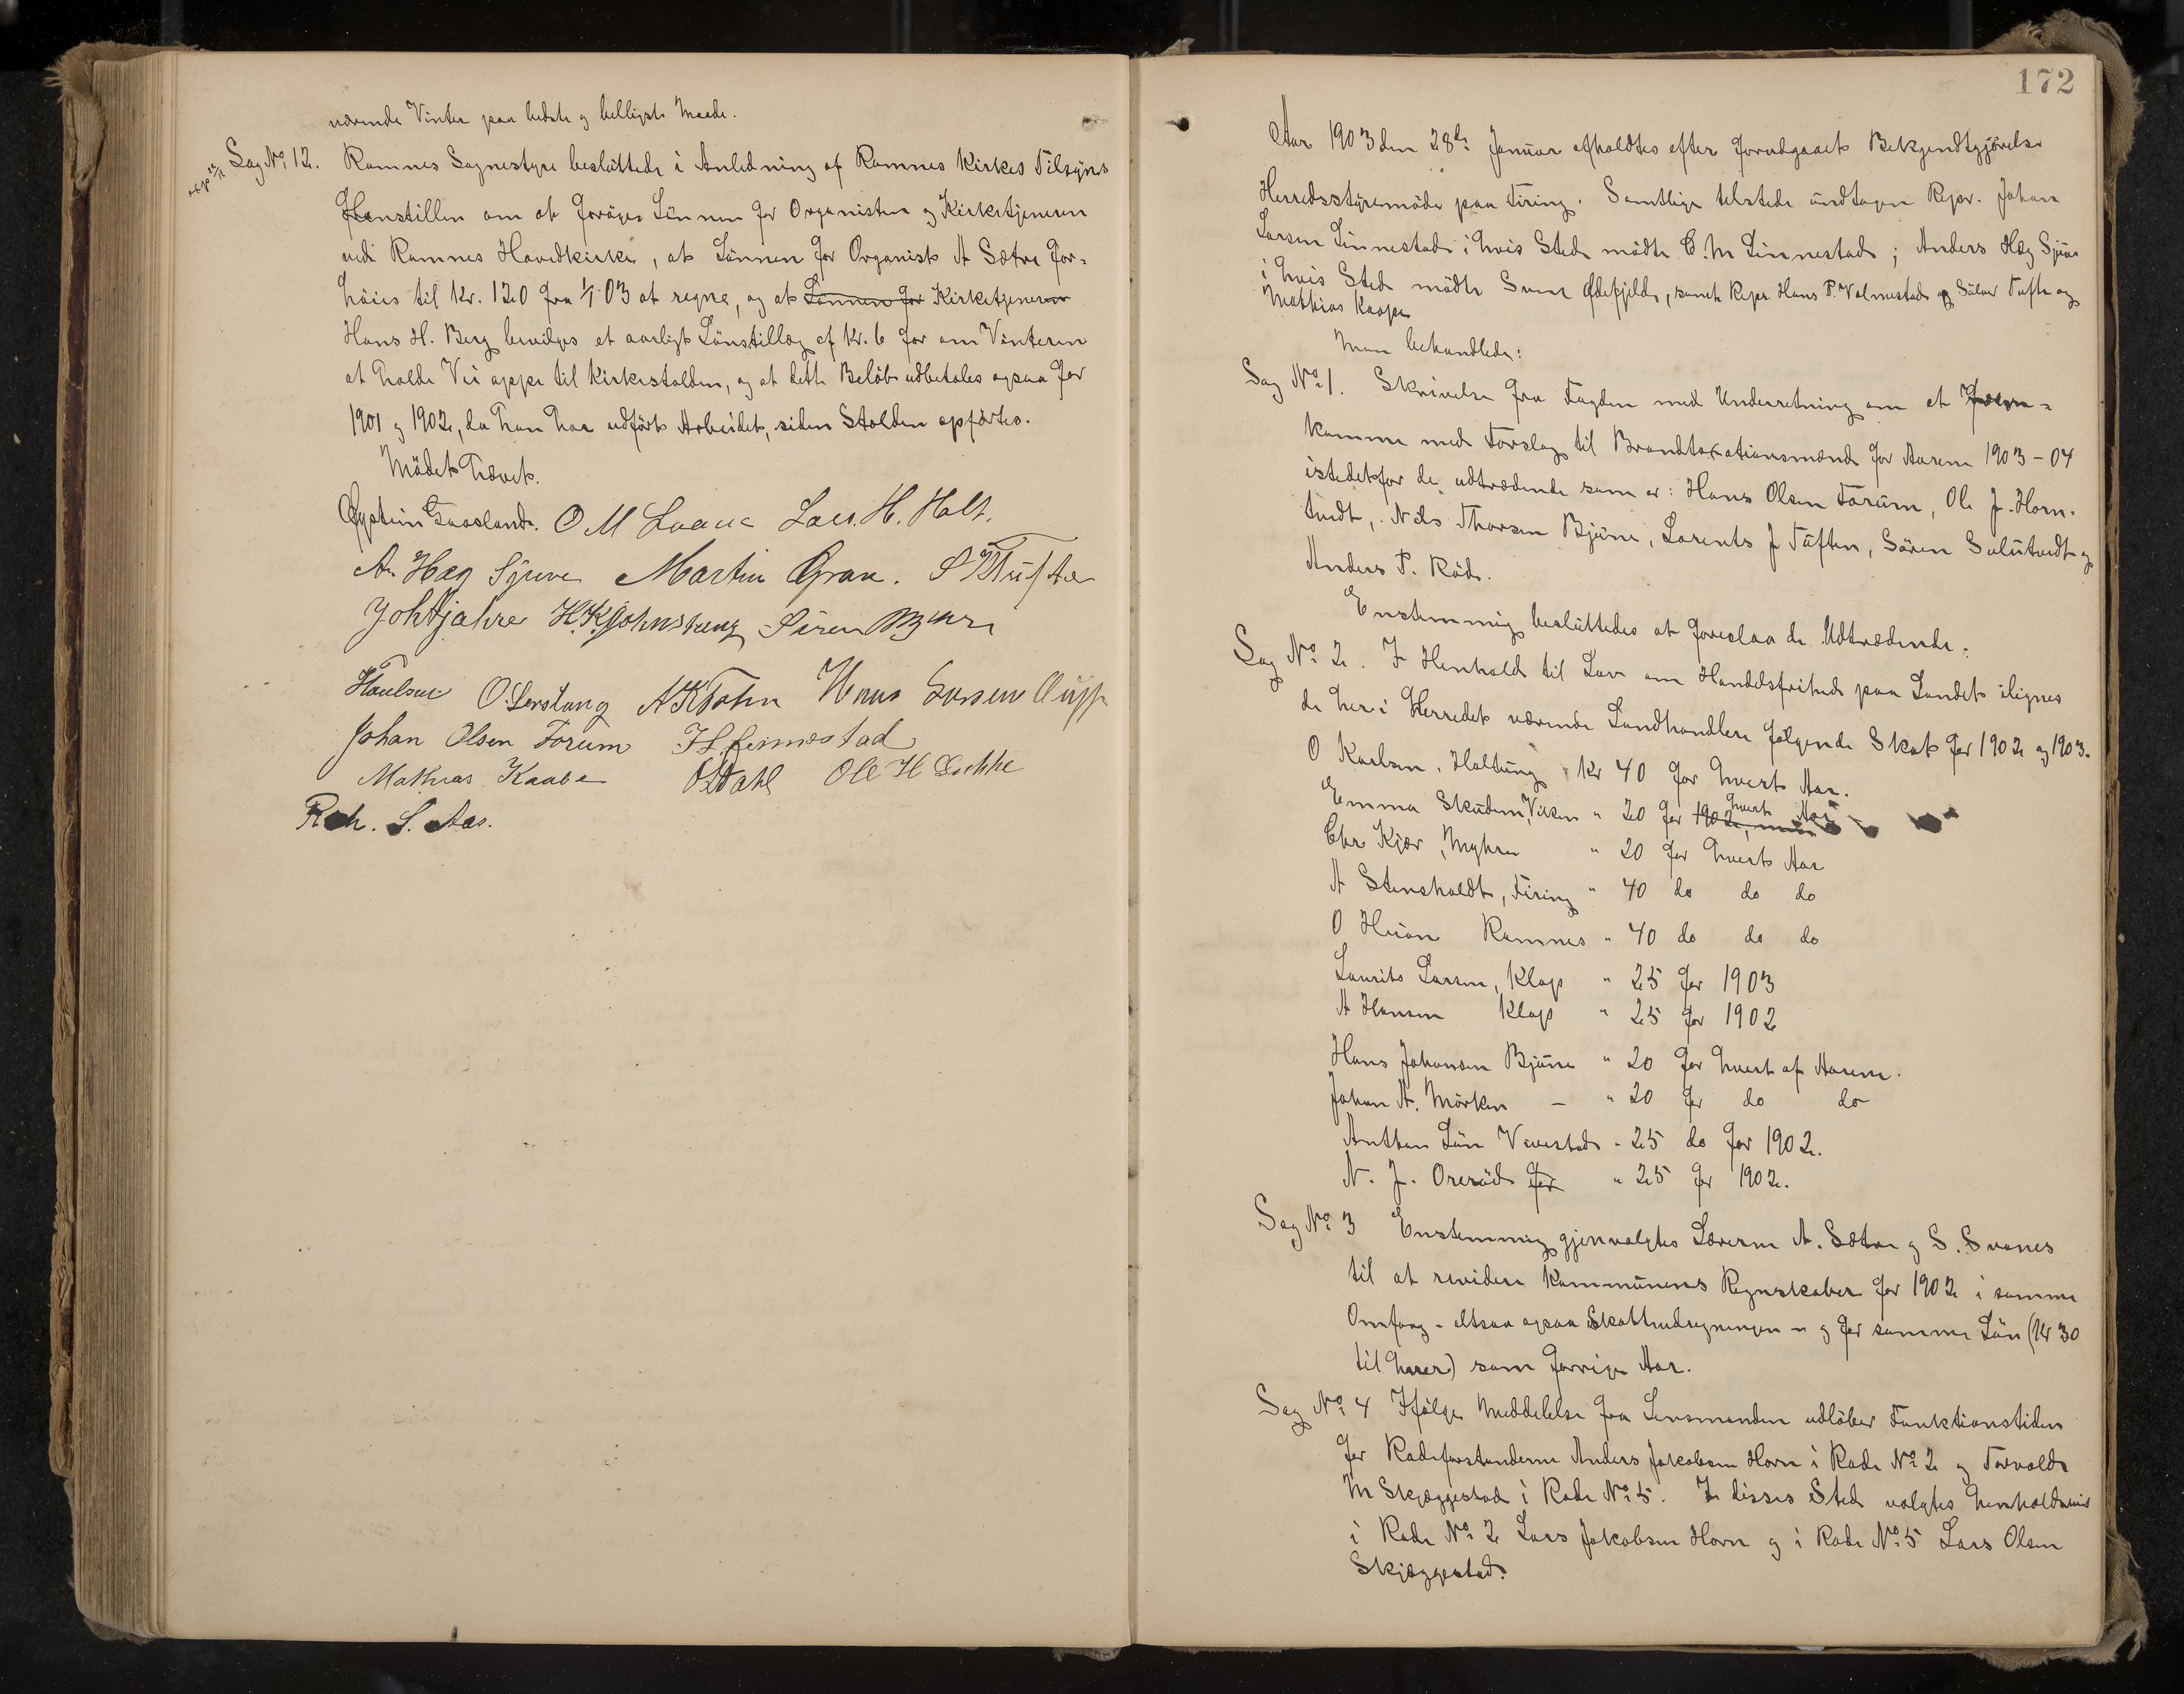 værende Vinter paa bedste og billigste Maade.
Sag No. 12. Ramnes Sognestyre besluttede i Anledning af Ramnes Kirkes Tilsyns
Henstillen om at forøges Lønnen for Organisten og Kirketjeneren
ved Ramnes Hovedkirke, at Lønnen for Organist A Sætre for-
høies til Kr. 120 fra 1/1 03 at regne, og at Lønnen for Kirketjeneren
Hans H. Berg bevilges et aarligt Lønstillæg af Kr. 6 for om Vinteren
at holde Vei oppe til Kirkestalden, og at dette Beløb udbetales ogsaa for
1901 og 1902, da han har udført Arbeidet, siden Stalden opførtes.
Mødet hævet.
Øystein Gaasland. O M Laane Lars. H. Holt.
A. Hæg Sjuve Martin Gran.
H. K. Johnsrung Søren
O. Lerstang Hans Larsen
Johan Olsen Forum H. Linnestad
Mathias Kaabe O. Dahl Ole H
Reh. S. Aas.
172
Aar 1903 den 28de Januar afholdtes efter forudgaaet Bekjendtgjørelse
Herredsstyremøde paa Firing. Samtlige tilstede undtagen Repr. Johan
Larsen Linnestad i hvis Sted mødte C. M Linnestad; Anders Hæg Sjuve
i hvis Sted mødte Svend Ødefjeld, samt Repr Hans P. Valmestad og Sølver Tufte og
Mathias Kaape
Man behandlede:
Sag No. 1. Skrivelse fra Fogden med Underretning om at frem-
komme med Forslag til Brandtaxationsmænd for Aarene 1903-04
istedetfor de udtrædende som er: Hans Olsen Forum, Ole J. Horn-
tvedt, Nils Thorsen Bjune, Laurents J Tuften, Søren Sulutvedt og
Anders P. Röd.
Enstemmig besluttedes at foreslaa de Udtrædende.
Sag No. 2. I Henhold til Lov om Handelsfrihed paa Landet ilignes
de her i Herredet værende Landhandlere følgende Skat for 1902 og 1903.
O Karlsen, Holtung Kr 40 for hvert Aar.
Emma Skuden, Viken " 20 for 1902, hvert Aar
Chr Kjær, Myhre " 20 for hvert Aar
A Stensholdt, Firing " 40 do do do
O Huion Ramnes " 40 do do do
Laurits Larsen, Klop " 25 for 1903
A Hansen Klop " 25 for 1902
Hans Johansen Bjune " 20 for hvert af Aarene.
Johan A. Mörken — " 20 for do do
Anthon Lön Vivestad " 25 do for 1902.
N. J. Oreröd for " 25 for 1902.
Sag No. 3 Enstemmig gjenvalgtes Lærerne A. Sætre og S. Svanes
til at revidere Kommunens Regnskaber for 1902 i samme
Omfang - altsaa ogsaa Skatteudregningen - og for samme Løn (Kr 30
til hver) som forrige Aar.
Sag No. 4 Ifølge Meddelelse fra Lensmanden udløber Funktionstiden
for Rodeforstanderne Anders Jakobsen Horn i Rode No. 2 og Torvald
M Skjeggestad i Rode No. 5. I disses Sted valgtes henholdsvis
i Rode No. 2 Lars Jakobsen Horn og i Rode No. 5 Lars Olsen
Skjeggestad.